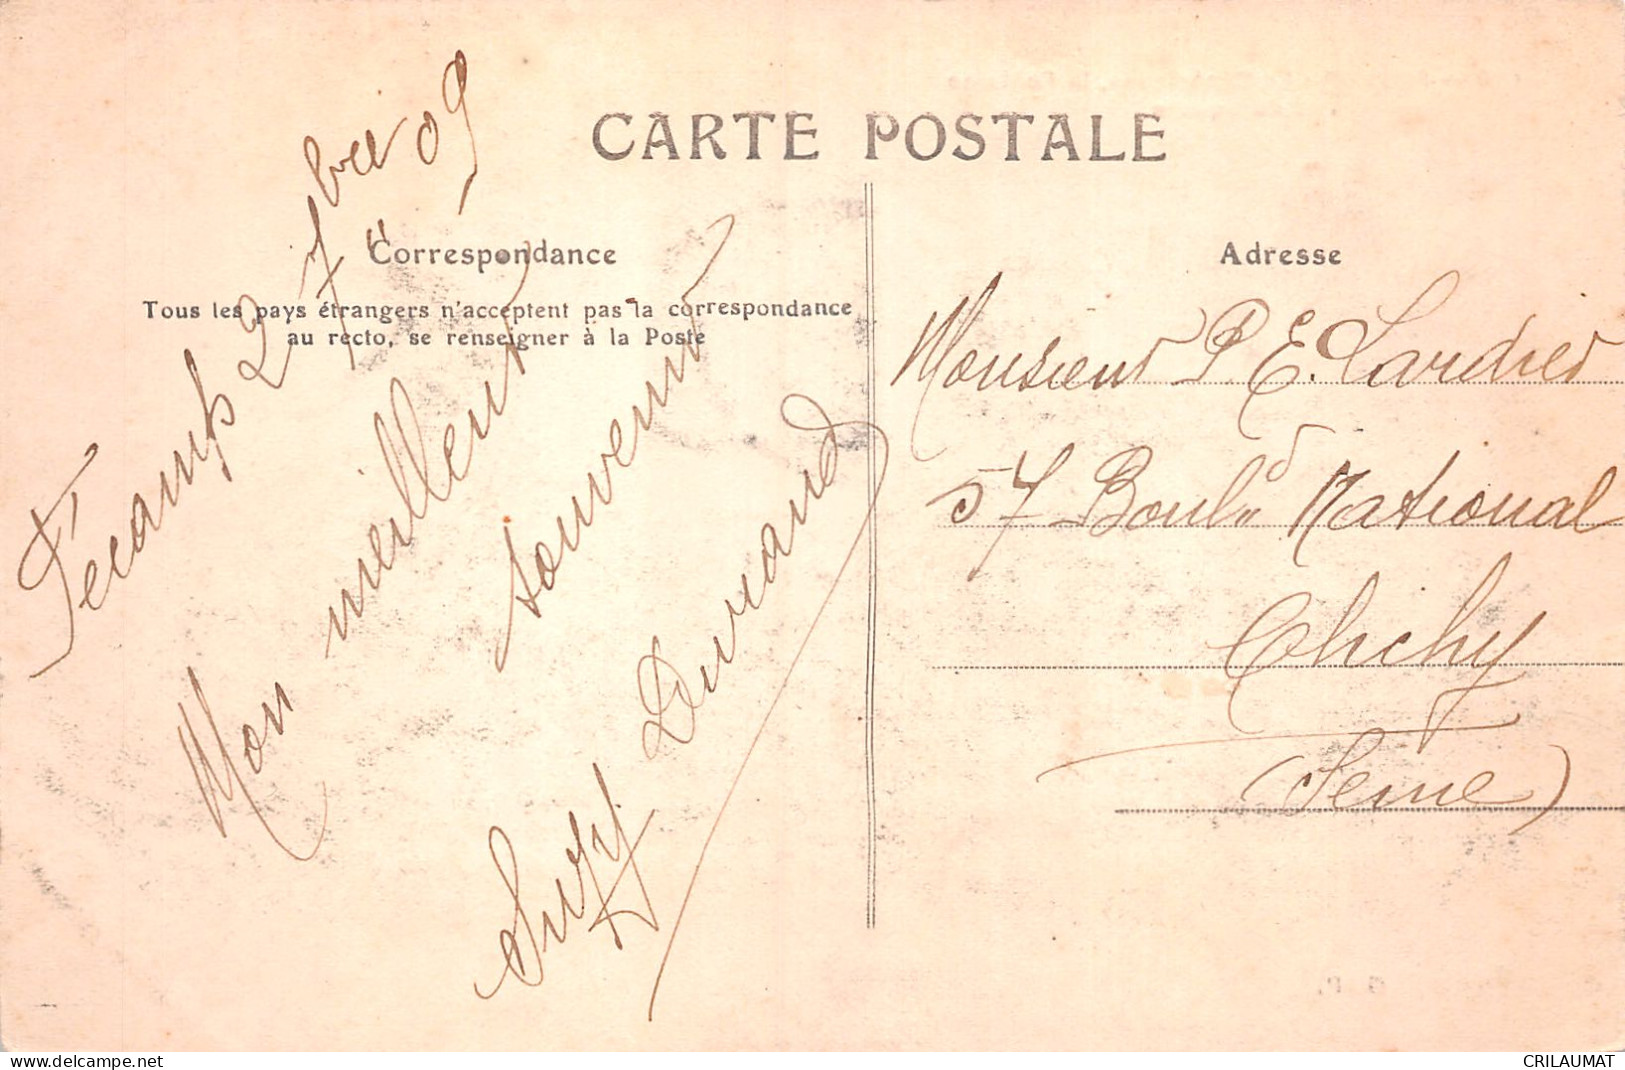 CARTE POSTALE
Correspondance
Tous les pays étrangers n'acceptent pas la correspondance
au recto, se renseigner à la Poste
Fécamp 2 7bre 09
Mon meilleur
souvenir
Suzy Durand
Adresse
Monsieur P. E. Lardier
57 Bould National
Clichy
(Seine)
www.delcampe.net
CRILAUMAT